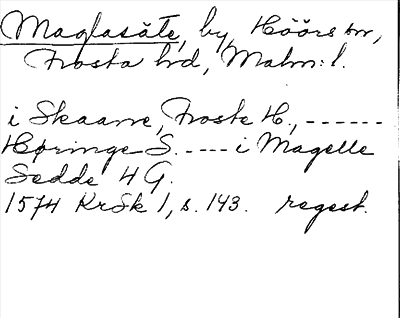 Maglasäte, by, Höörs sn,
Frosta hd, Malm: l.
i Skaane, Froste H., ------
Høringe S. ---- i Magelle
Sedde 4 G.
1574 KrSk 1, s. 143. regest.